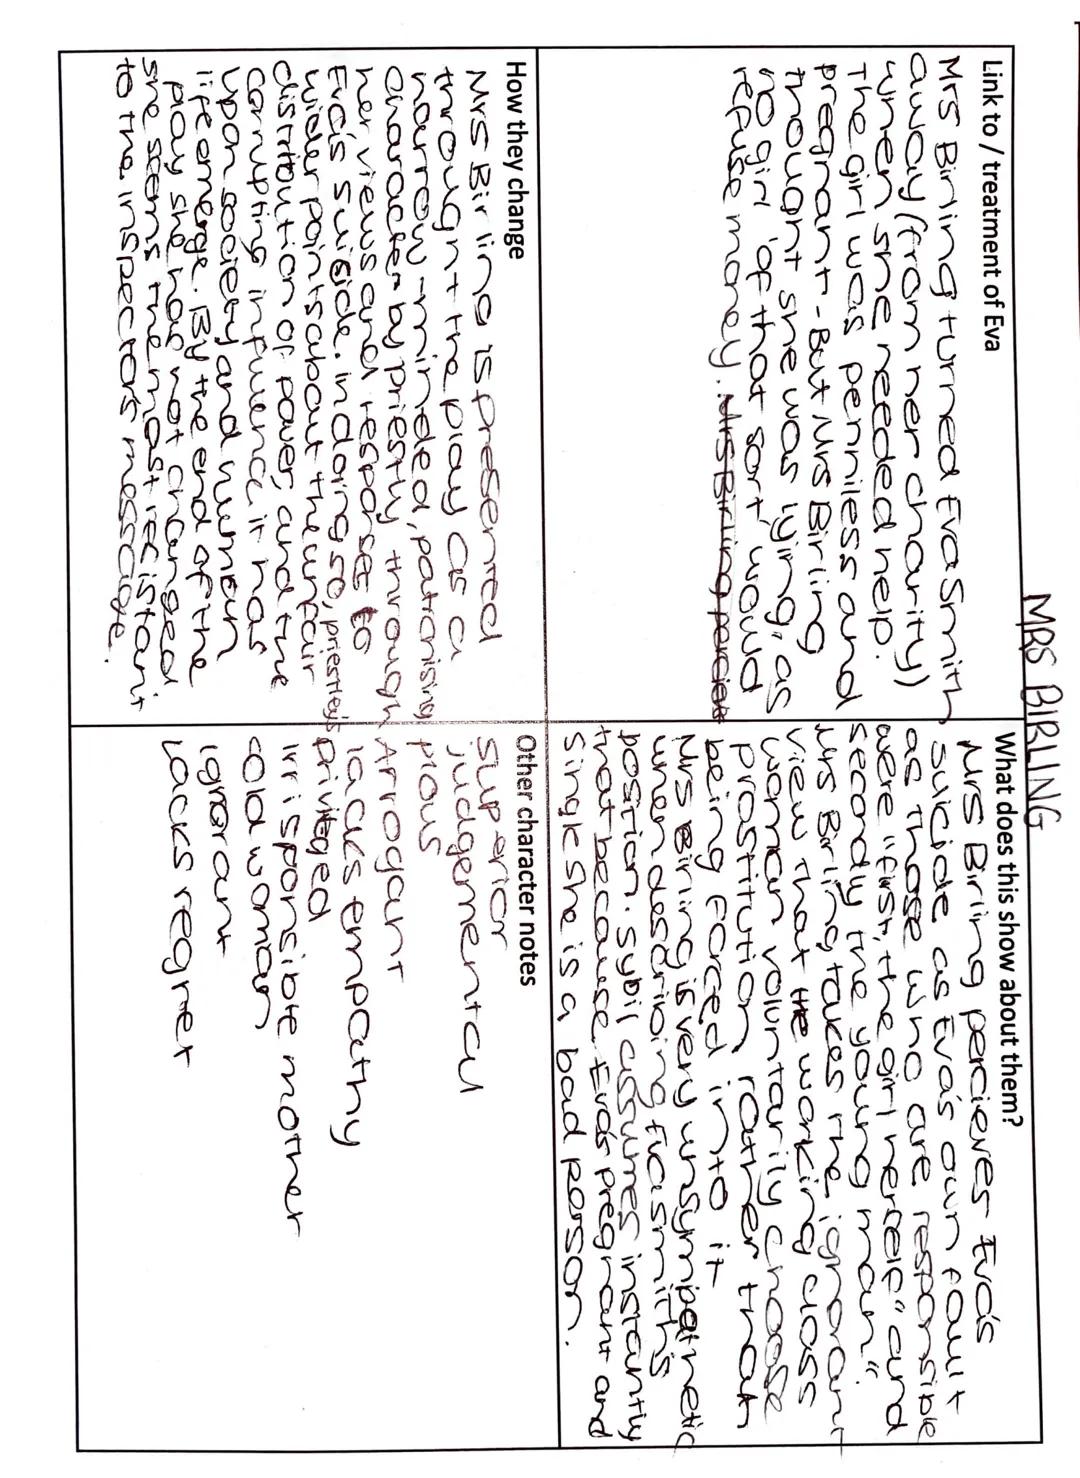 MRS BIRLING
Link to / treatment of Eva
Mrs Birling turned Eva Smith
away (from her charity)
when she needed help.
The girl was penniless and
pregnant - But Mrs Birling
thought she was lying, as
no girl 'of that sort' would
refuse money. Mrs Birling percieve
What does this show about them?
Mrs Birling percieves Eva's
suicide as Eva's own fault
as those who are responsible
were "first, the girl herself" and
secondly the young man".
Mrs Birling takes the ignorant
view that the working class
woman voluntarily choose
prostitution, rather than
being forced into it
Mrs Birling is very unsympathetic
when describing Eva Smith's
position. Sybil assumes instantly
that because Eva's pregnant and
single she is a bad person.
How they change
Mrs Birling is presented
through the play as a
narrow-minded, patronising
character by priestly through
her views and response to
Eva's suicide. in doing so, priestley's
wider points about the unfair
distribution of power, and the
corrupting influence it has
upon society and human
life emerge. By the end of the
play she has not changed
she seems the most recistant
to the inspector's message.
Other character notes
superior
judgemental
pious
Arrogant
lacks empathy
privileged
irrisponsible mother
cold woman
ignorant
Locks regret